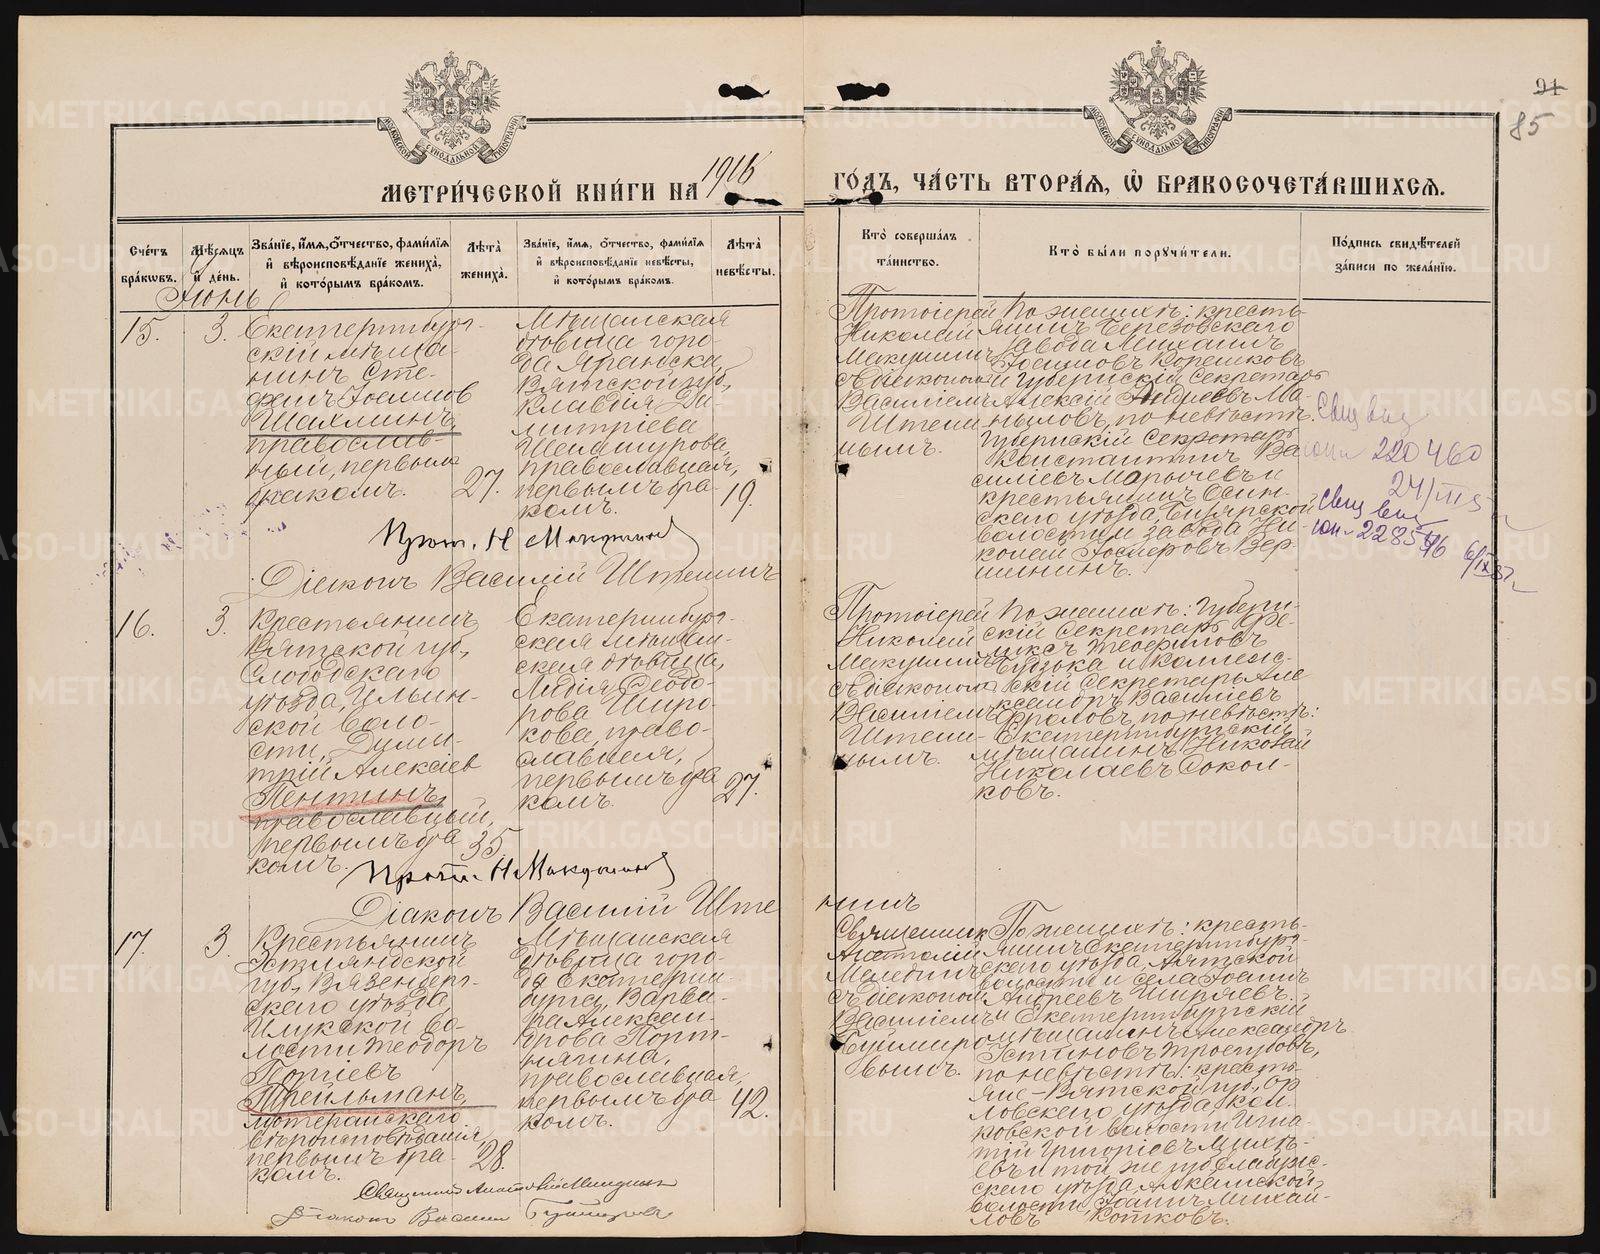 МЕТРИ́ЧЕСКОЙ КНИ́ГИ НА 1916 ГО́ДЪ, ЧА́СТЬ ВТОРА́Я, Ѿ БРАКОСОЧЕТА́ВШИХСЯ.
85
Сче́тъ бра́кѡвъ.
Мѣ́сяцъ и де́нь.
Зва́нїе, и́мя, ѻ҆́тчество, фами́лїя и вѣроисповѣ́данїе жениха̀, и кото́рымъ бра́комъ.
Лѣта̀ жениха̀.
Зва́нїе, и́мя, ѻ҆́тчество, фами́лїя и вѣроисповѣ́данїе невѣ́сты, и кото́рымъ бра́комъ.
Лѣта̀ невѣ́сты.
Кто̀ соверша́лъ та́инство.
Кто̀ бы́ли поручи́тели.
По́дпись свидѣ́телей за́писи по жела́нїю.
Іюнь
15.
3.
Екатеринбург-
скій мѣща-
нинъ Сте-
фанъ Іоанновъ
Шахминъ,
православ-
ный, первымъ
бракомъ.
27.
Мѣщанская
дѣвица горо-
да Яранска,
Вятской губ.,
Клавдія Ди-
митріева
православная,
первымъ бра-
комъ.
19.
Протоіерей
Николай
Макушинъ
съ діакономъ
Василіемъ
Штени-
нымъ.
По женихѣ: кресть-
янинъ Березовскаго
завода Михаилъ
Іоанновъ Корешковъ
и Губернскій Секретарь
Алексій Андреевъ Ма-
ныловъ, по невѣстѣ:
Губернскій Секретарь
Константинъ Ва-
силіевъ Марычевъ и
крестьянинъ Осин-
скаго уѣзда, Бизярской
волости и завода Ни-
колай
Вер-
шининъ.
220460
Прот. Н Макушинъ
Діаконъ Василій Штенинъ
16.
3.
Крестьянинъ
Вятской губ.,
Слободскаго
уѣзда, Ильин-
ской воло-
сти, Дими-
трій Алексіевъ
Пентинъ,
православный,
первымъ бра-
комъ.
35
Екатеринбург-
ская мѣщан-
ская дѣвица,
Лидія Ѳеодо-
рова Широ-
кова, право-
славная,
первымъ бра-
комъ.
27.
Протоіерей
Николай
Макушинъ
съ діакономъ
Василіемъ
Штени-
нымъ.
По женихѣ: Губерн-
скій Секретарь
Ѳеофиловъ
и Коллеж-
скій Секретарь Але-
ксандръ Василіевъ
Фроловъ, по невѣстѣ:
Екатеринбургскій
мѣщанинъ Николай
Николаевъ Сокол-
ковъ.
Прот. Н Макушинъ
Діаконъ Василій Штенинъ
17.
3.
Крестьянинъ
Эстляндской
губ. Везенберг-
скаго уѣзда
Илукской во-
лости Ѳеодоръ
Трейльманъ,
лютеранскаго
вѣроисповѣданія,
первымъ бра-
комъ.
28.
Мѣщанская
дѣвица горо-
да Екатерин-
бурга, Варва-
ра Алексан-
дрова Порт-
нягина,
православная,
первымъ бра-
комъ.
42.
Священникъ
Анатолій
съ діакономъ
Василіемъ
Буймиро-
вымъ.
По женихѣ: кресть-
янинъ Екатеринбург-
скаго уѣзда, Аятской
волости и села Іоаннъ
Андреевъ Ширяевъ
и Екатеринбургскій
мѣщанинъ Александръ
Устиновъ Трегубовъ,
по невѣстѣ: кресть-
яне Вятской губ., Ор-
ловскаго уѣзда,
волости Игна-
тій Григоріевъ
и той же губ.
скаго уѣзда,
волости Іоаннъ Михай-
ловъ Котковъ.